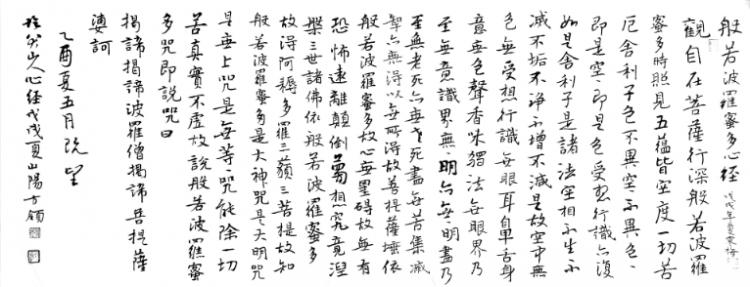 般若波羅蜜多心經 戊戌年夏
觀自在菩薩行深般若波羅
蜜多時照見五蘊皆空度一切苦
厄舍利子色不異空空不異色色
即是空空即是色受想行識亦復
如是舍利子是諸法空相不生不
滅不垢不淨不增不減是故空中無
色無受想行識無眼耳鼻舌身
意無色聲香味觸法無眼界乃
至無意識界無無明亦無無明盡乃
至無老死亦無老死盡無苦集滅
智亦無得以無所得故菩提薩埵依
般若波羅蜜多故心無罣礙故無有
恐怖遠離顛倒夢想究竟涅
槃三世諸佛依般若波羅蜜多
故得阿耨多羅三藐三菩提故知
般若波羅蜜多是大神咒是大明咒
是無上咒是無等咒能除一切
苦真實不虛故說般若波羅蜜
多咒即說咒曰
揭諦揭諦波羅僧揭諦菩提薩
婆訶
乙酉夏五月既望
山人心經戊戌夏山陽方